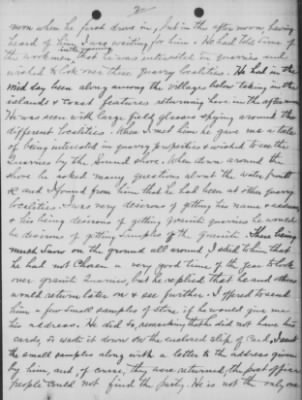 2
noon when he first drove in, but in the afternoon having
heard of him I was waiting for him. He had told some of
the workmen, in the quarry that he was interested in quarries and
wished to look over those quarry localities. He had in the
mid day been along among the villages below taking in the
islands & coast features returning here in the afternoon
He was seen with large field glasses spying around the
different localities. When I met him he gave me a state
of being interested in quarry properties & wished to see the
quarries by the Sound shore. When down around the
shore he asked many questions about the water front
& and I found from him that he had been at other quarry
localities. I was very desirous of getting his name & address,
& his being desirous of getting granite quarries he would
be desirous of getting samples of the granite. There being
much snow on the ground all around, I told him that
he had not chosen a very good time of the year to look
over granite quarries, but he replied that he and others
would return later on & see further. I offered to send
him a few small samples of stone if he would give me
his address. He did so, remarking that he did not have his
cards, & wrote it down on the enclosed slip of card, I sent
the small samples along with a letter to the address given
by him, and, of course, they was returned, the post office
people could not find the party. He is not the only one